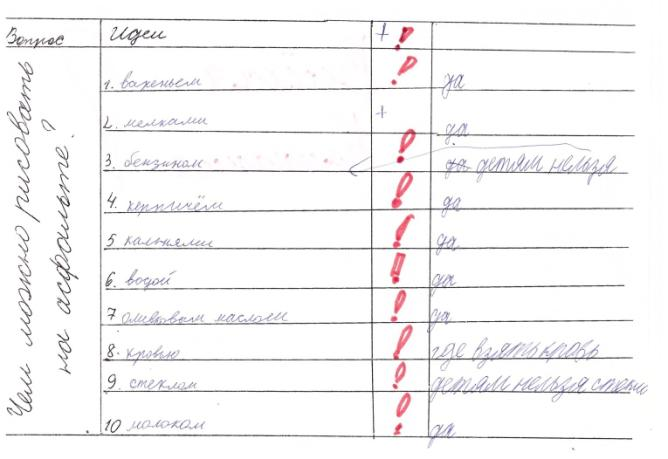 Вопрос Идеи + !
Чем можно рисовать
на асфальте?
1. вареньем ! да
2. мелками + да
3. бензином ! да детям нельзя
4. кирпичём ! да
5 камнями ! да
6. водой ! да
7 оливковым маслом ! да
8. кровью ! где взять кровь
9. стеклом ! детям нельзя стекло
10 молоком ! да